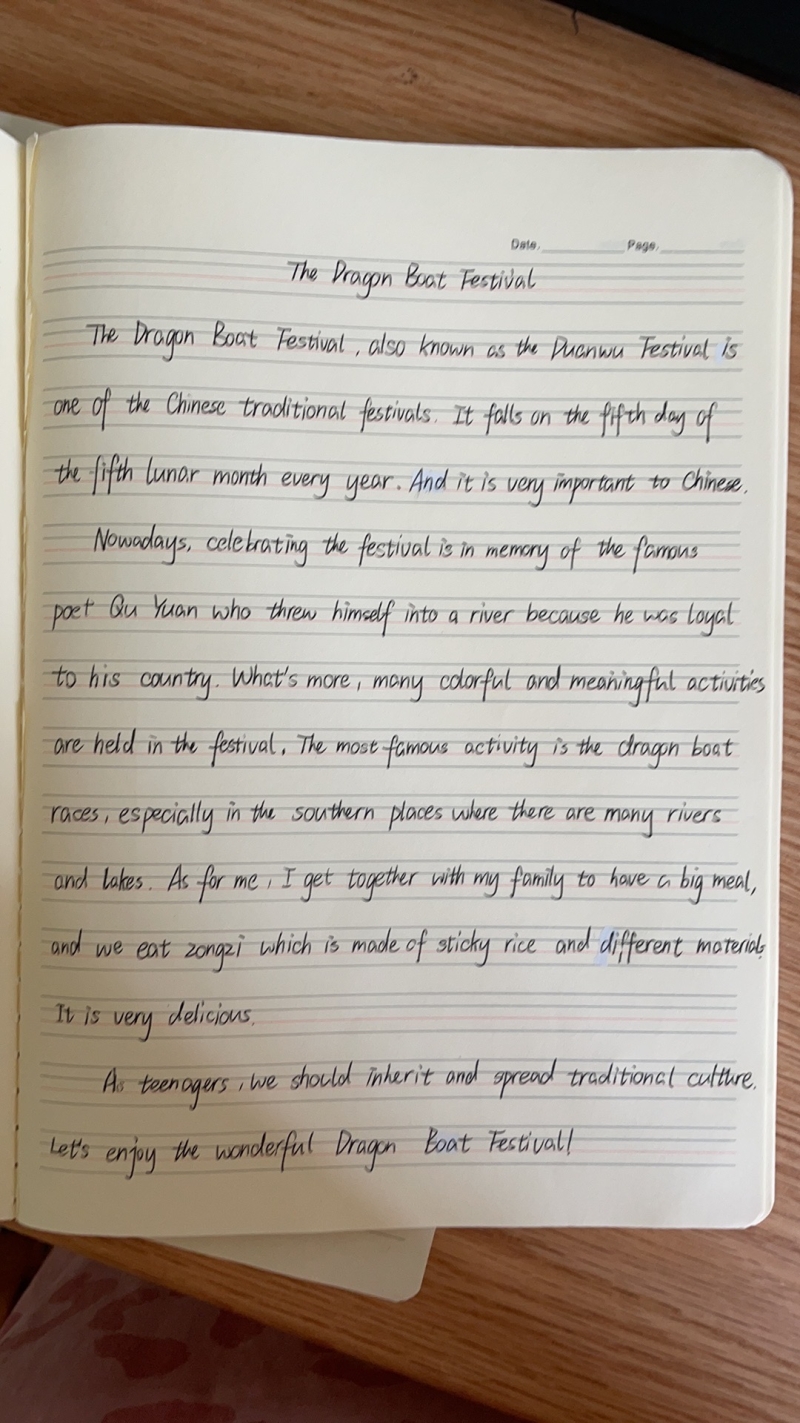 Date. Page.
The Dragon Boat Festival
The Dragon Boat Festival, also known as the Duanwu Festival is
one of the Chinese traditional festivals. It falls on the fifth day of
the fifth lunar month every year. And it is very important to Chinese.
Nowadays, celebrating the festival is in memory of the famous
poet Qu Yuan who threw himself into a river because he was loyal
to his country. What's more, many colorful and meaningful activities
are held in the festival. The most famous activity is the dragon boat
races, especially in the southern places where there are many rivers
and lakes. As for me, I get together with my family to have a big meal,
and we eat zongzi which is made of sticky rice and different materials.
It is very delicious.
As teenagers, we should inherit and spread traditional culture.
Let's enjoy the wonderful Dragon Boat Festival!